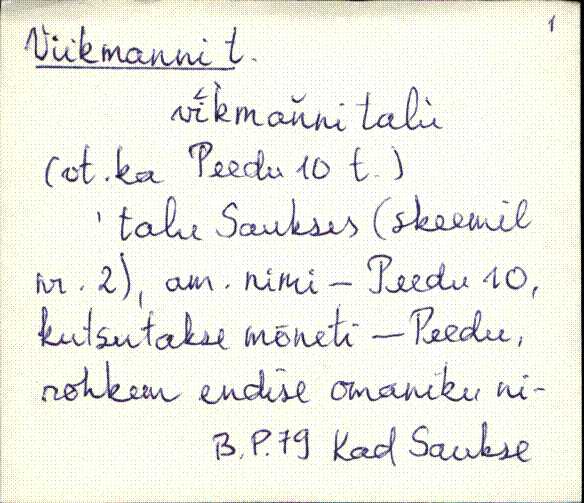 1
Viikmanni t.
vīkman̆ni talu
(vt. ka Peedu 10 t.)
talu Saukses (skeemil
nr. 2), am. nimi – Peedu 10,
kutsutakse mōneti – Peedu,
rohkem endise omaniku ni-
B.P. 79 Kad Saukse